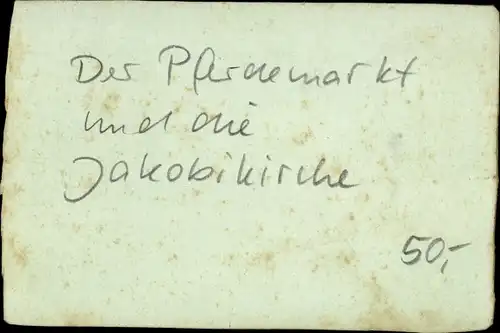 Der Pferdemarkt
und die
Jakobikirche
50,-